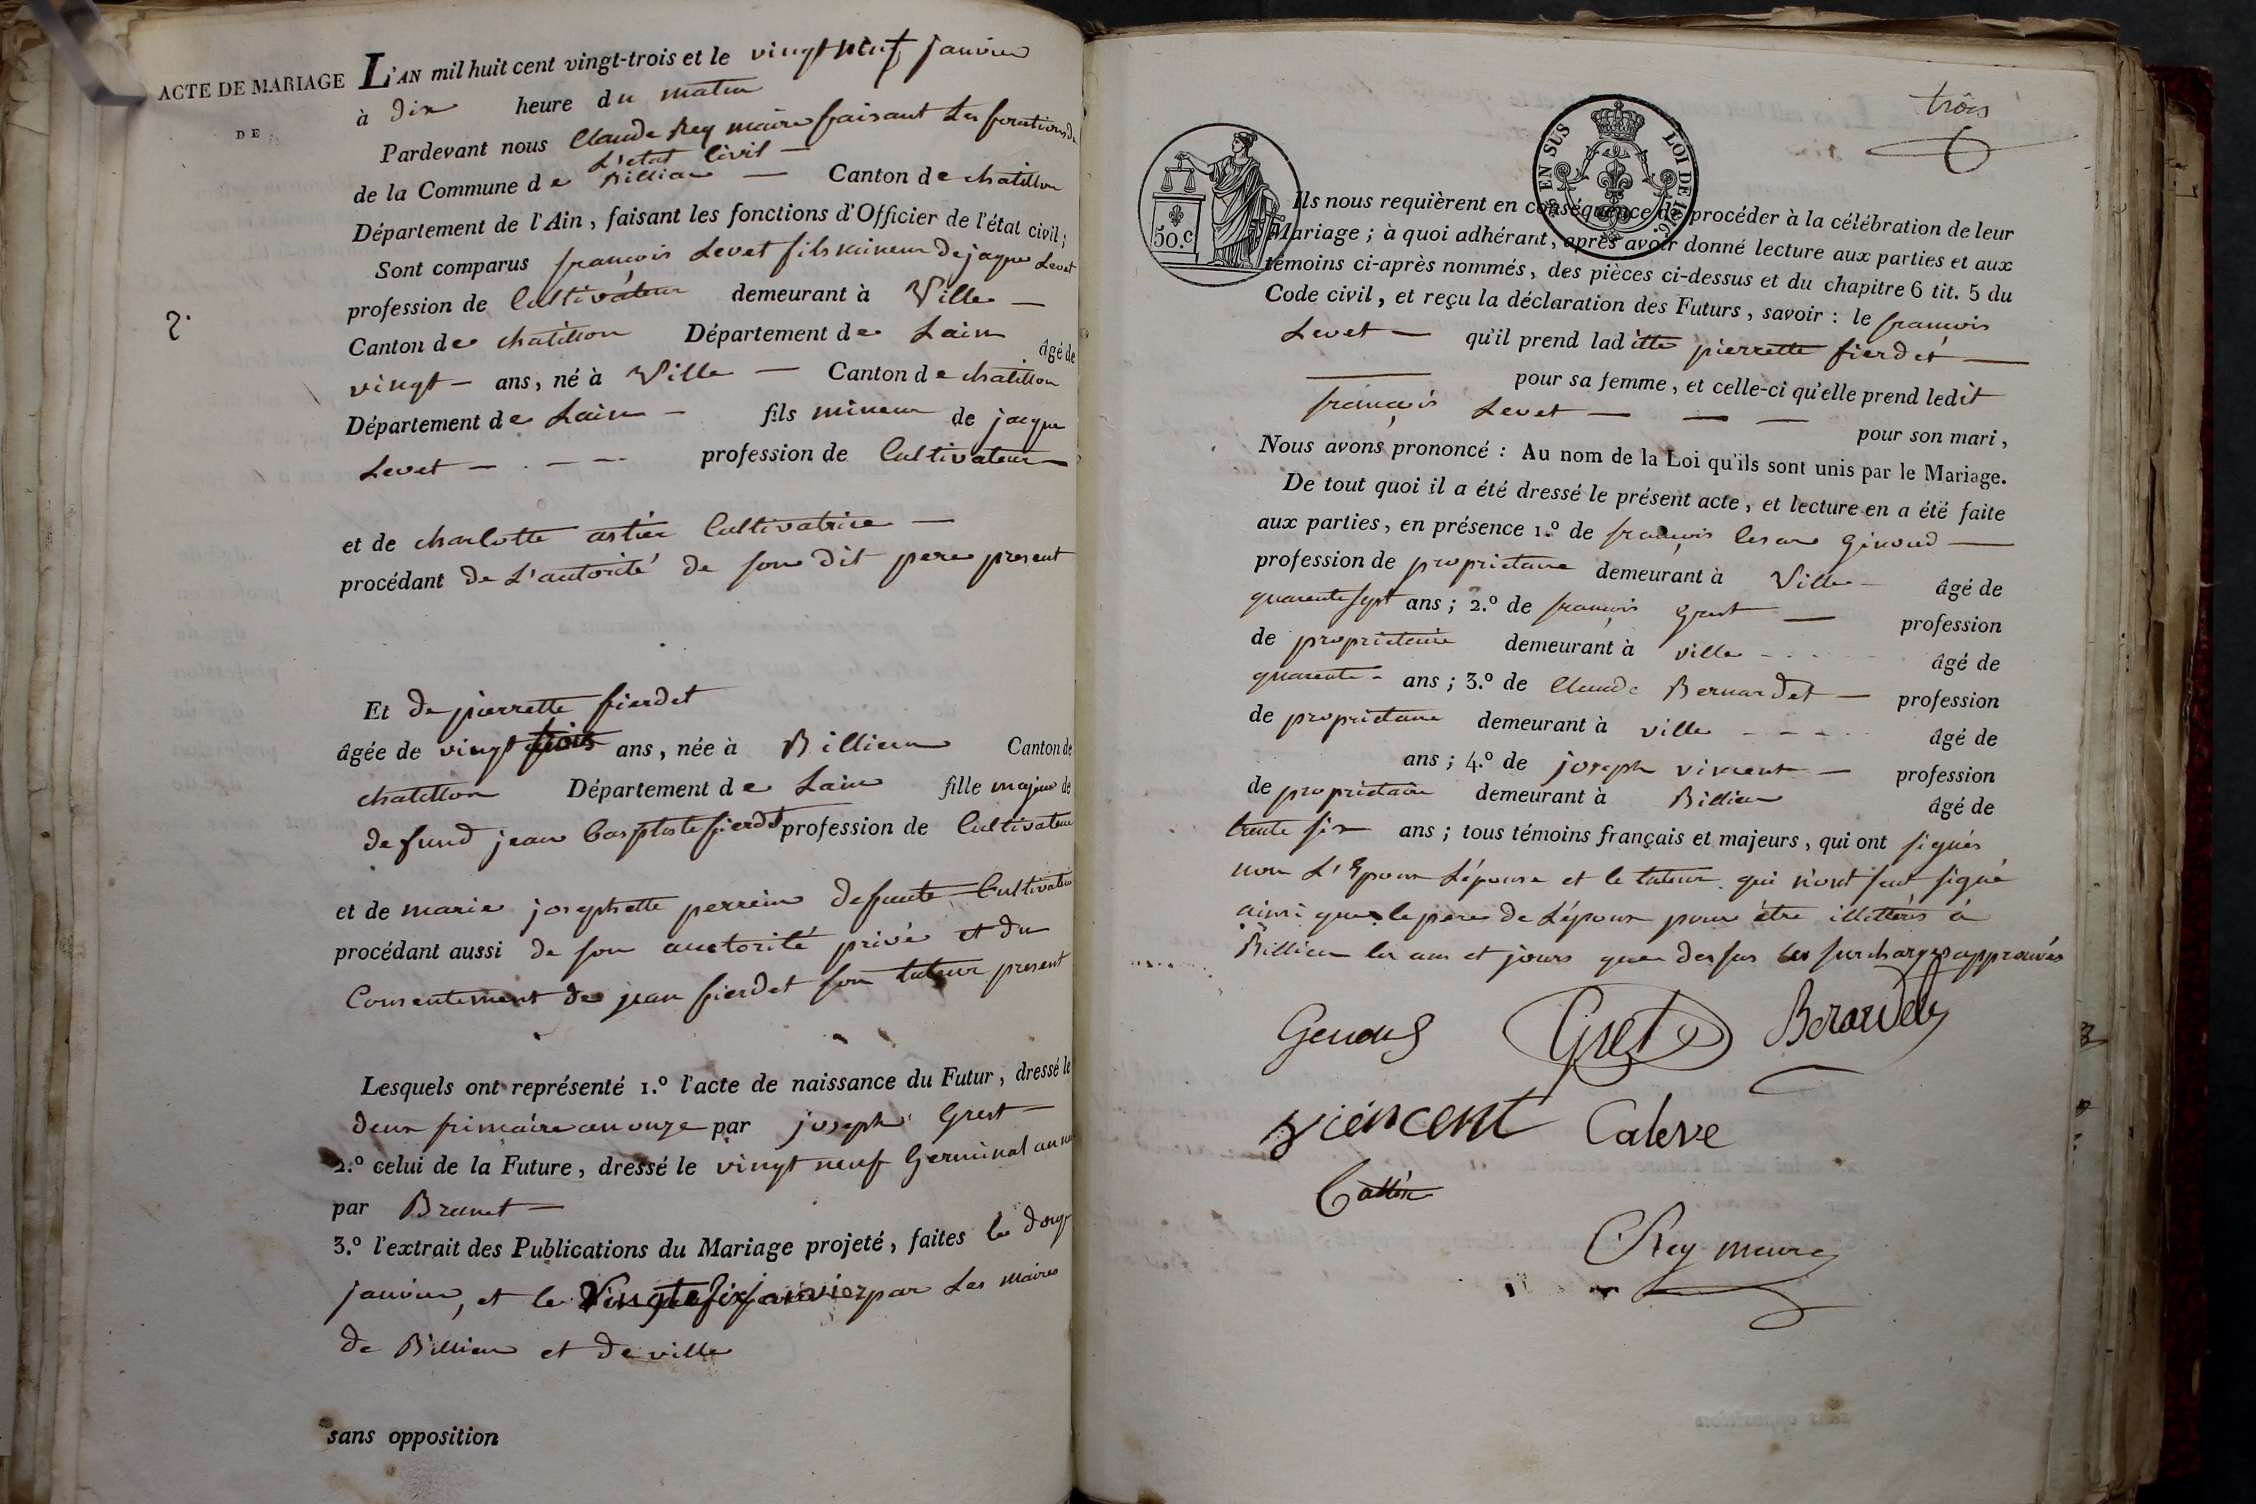 ACTE DE MARIAGE
DE
2.
L'AN mil huit cent vingt-trois et le vingt neuf janvier
à dix heure du matin
Pardevant nous Claude Rey maire faisant les fonctions de
L'etat Civil —
de la Commune de Billieu — Canton de chatillon
Département de l'Ain, faisant les fonctions d'Officier de l'état civil;
Sont comparus francois Levet fils mineur de jaque Levet
profession de Cultivateur demeurant à Ville —
Canton de chatillon Département de Lain âgé de
vingt — ans, né à Ville — Canton de chatillon
Département de Lain — fils mineur de jacque
Levet — profession de Cultivateur —
et de charlotte astier Cultivatrice —
procédant de L'autorité de son dit pere present
Et de pierrette fierdet
âgée de vingt trois ans, née à Billieu Canton de
chatillon Département de Lain fille majeur de
defund jean baptiste fierdet profession de Cultivateur
et de marie josephette perrein defunte Cultivatrice
procédant aussi de son auctorité privé et du
Consentement de jean fierdet son tuteur present
Lesquels ont représenté 1.º l'acte de naissance du Futur, dressé le
deux frimaire an onze par joseph Grest —
2.º celui de la Future, dressé le vingt neuf Germinal an
par Brunet —
3.º l'extrait des Publications du Mariage projeté, faites le douze
janvier, et le Vingt six janvier par Les maires
de Billieu et de ville
sans opposition
trois
50.c
EN SUS LOI DE 1816.
Ils nous requièrent en conséquence de procéder à la célébration de leur
Mariage; à quoi adhérant, après avoir donné lecture aux parties et aux
témoins ci-après nommés, des pièces ci-dessus et du chapitre 6 tit. 5 du
Code civil, et reçu la déclaration des Futurs, savoir: le francois
Levet — qu'il prend laditte pierrette fierdet —
pour sa femme, et celle-ci qu'elle prend ledit
françois Levet — — — pour son mari,
Nous avons prononcé: Au nom de la Loi qu'ils sont unis par le Mariage.
De tout quoi il a été dressé le présent acte, et lecture en a été faite
aux parties, en présence 1.º de françois Cesar Genoud —
profession de proprietaire demeurant à Ville — âgé de
quarente sept ans; 2.º de françois Grest — profession
de proprietaire demeurant à ville âgé de
quarente - ans; 3.º de Claude Bernardet — profession
de proprietaire demeurant à ville âgé de
ans; 4.º de joseph vincent — profession
de proprietaire demeurant à Billieu âgé de
trente six ans; tous témoins français et majeurs, qui ont signés
non L'Epoux L'épouse et le tuteur qui n'ont seut signé
ainsi que le pere de L'époux pour être illitterés à
Billieu les an et jours que dessus les surcharges approuvés
Genoud Gret Berardet
Viencent Caleve
Rey meure